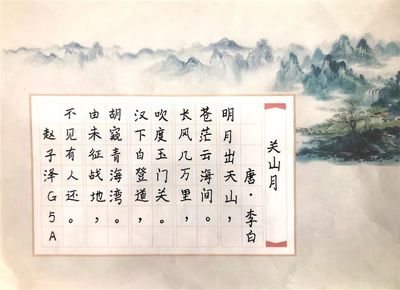 关山月
唐·李白
明月出天山，
苍茫云海间。
长风几万里，
吹度玉门关。
汉下白登道，
胡窥青海湾。
由来征战地，
不见有人还。
赵子泽G5A